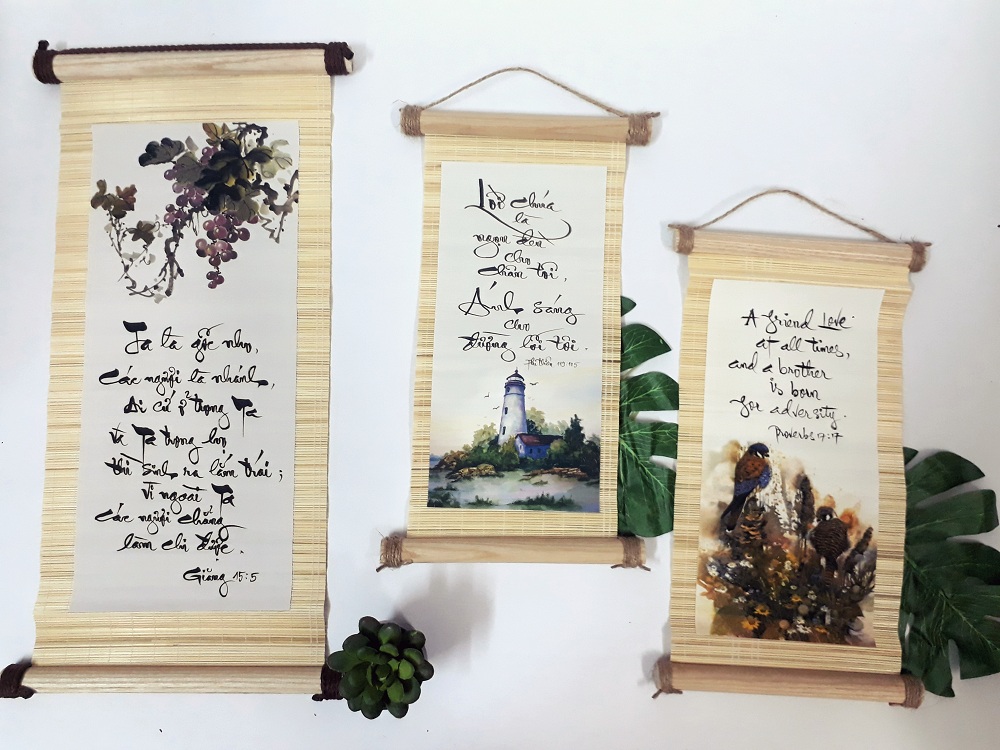 Ta là gốc nho,
các ngươi là nhánh,
Ai cứ ở trong Ta
và Ta trong họ
thì sinh ra lắm trái ;
Vì ngoài Ta
các ngươi chẳng
làm chi được.
Giăng 15:5
Lời Chúa
là
ngọn đèn
cho
chân tôi,
Ánh sáng
cho
đường lối tôi.
A friend Love
at all times,
and a brother
is born
for adversity.
Proverbs 17:17